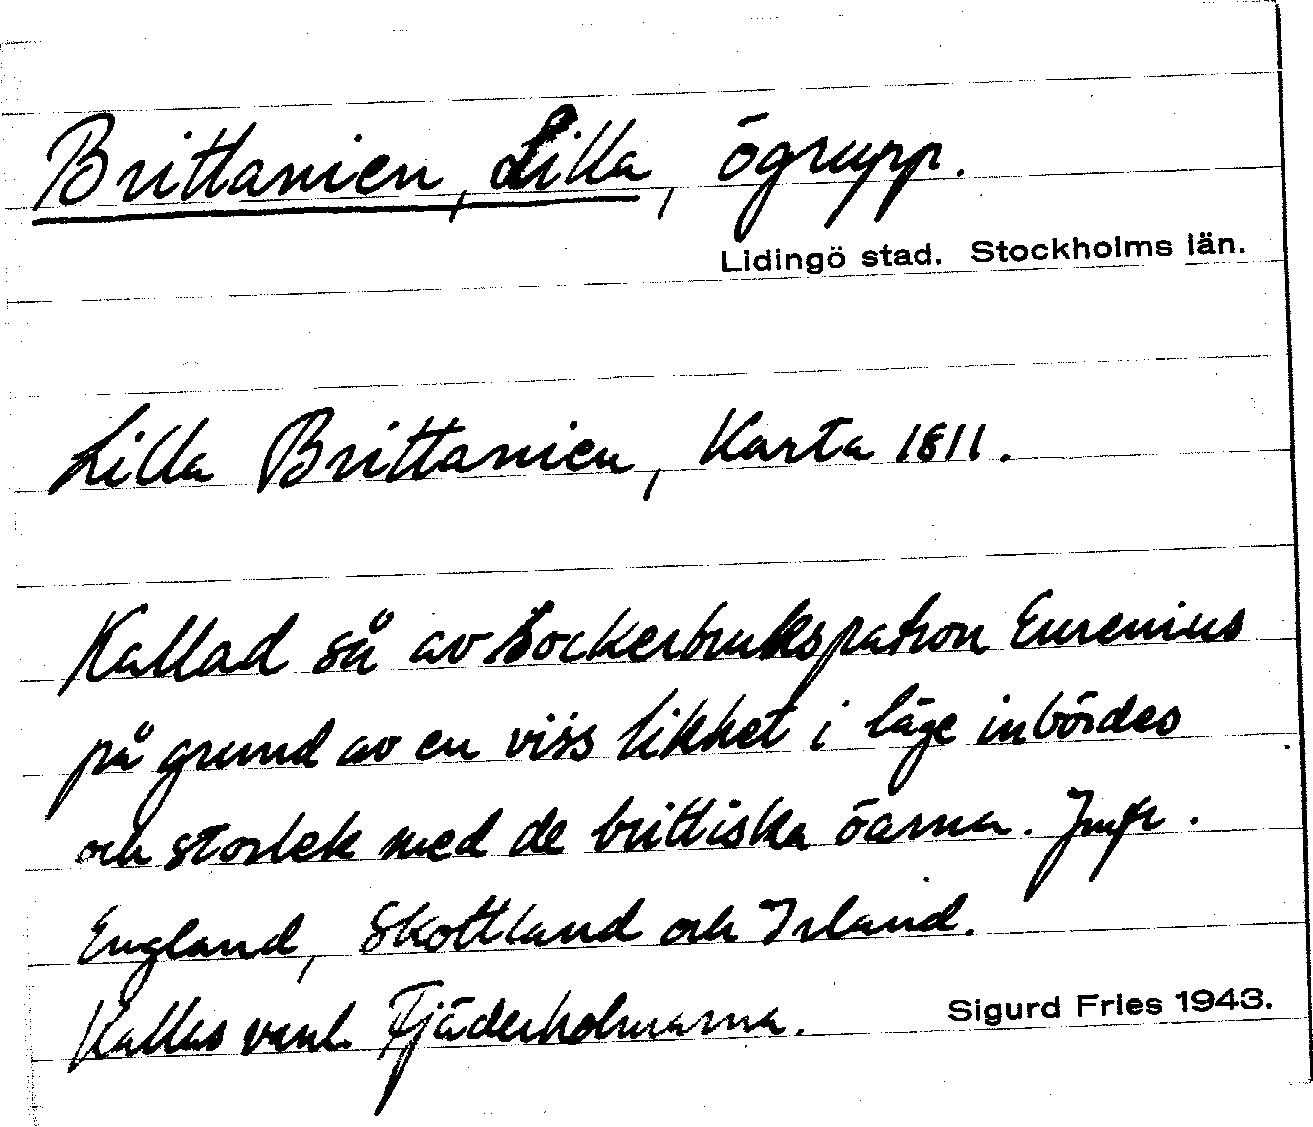 Brittanien, Lilla, ögrupp.
Lidingö stad. Stockholms län.
Lilla Brittanien, Karta 1811.
Kallad så av Sockerbrukspatron Eurenius
på grund av en viss likhet i läge inbördes
och storlek med de brittiska öarna. Jmfr.
England, Skottland och Irland.
Kallas vanl. Fjäderholmarna.
Sigurd Fries 1943.